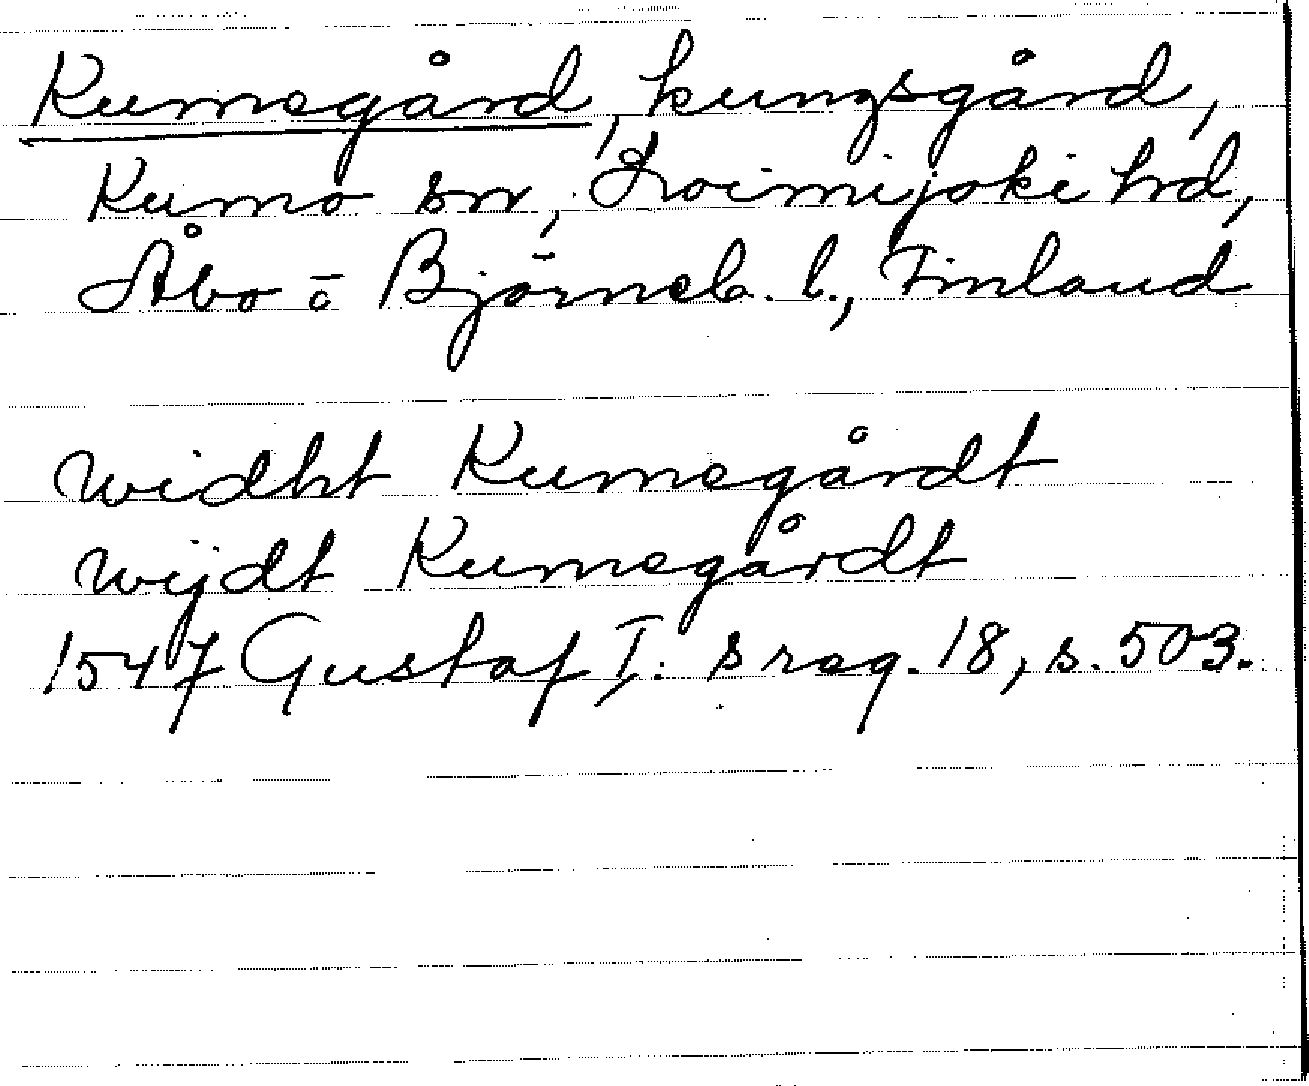 Kumegård, kungsgård,
Kumo sn, Loimijoki hd,
Åbo o Björneb. l., Finland
widht Kumegårdt
wijdt Kumegårdt
1547 Gustaf I: s reg. 18, s. 503.